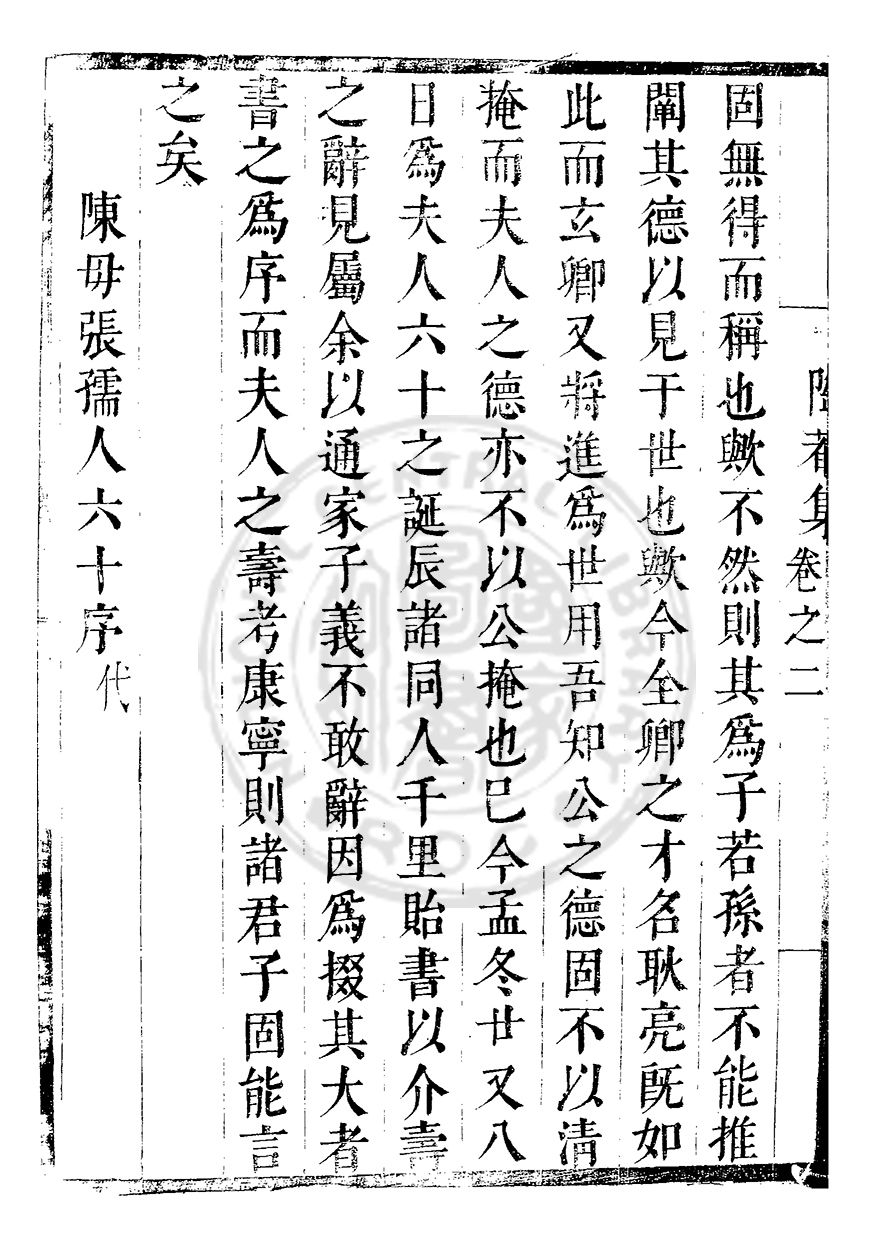 固無得而稱也歟不然則其爲子若孫者不能推
闡其德以見于世也歟今全卿之才名耿亮旣如
此而玄卿又將進爲世用吾知公之德固不以清
掩而夫人之德亦不以公掩也巳今孟冬廿又八
日爲夫人六十之誕辰諸同人千里貽書以介壽
之辭見屬余以通家子義不敢辭因爲掇其大者
書之爲序而夫人之壽考康寧則諸君子固能言
之矣
陳母張孺人六十序代
集卷之二